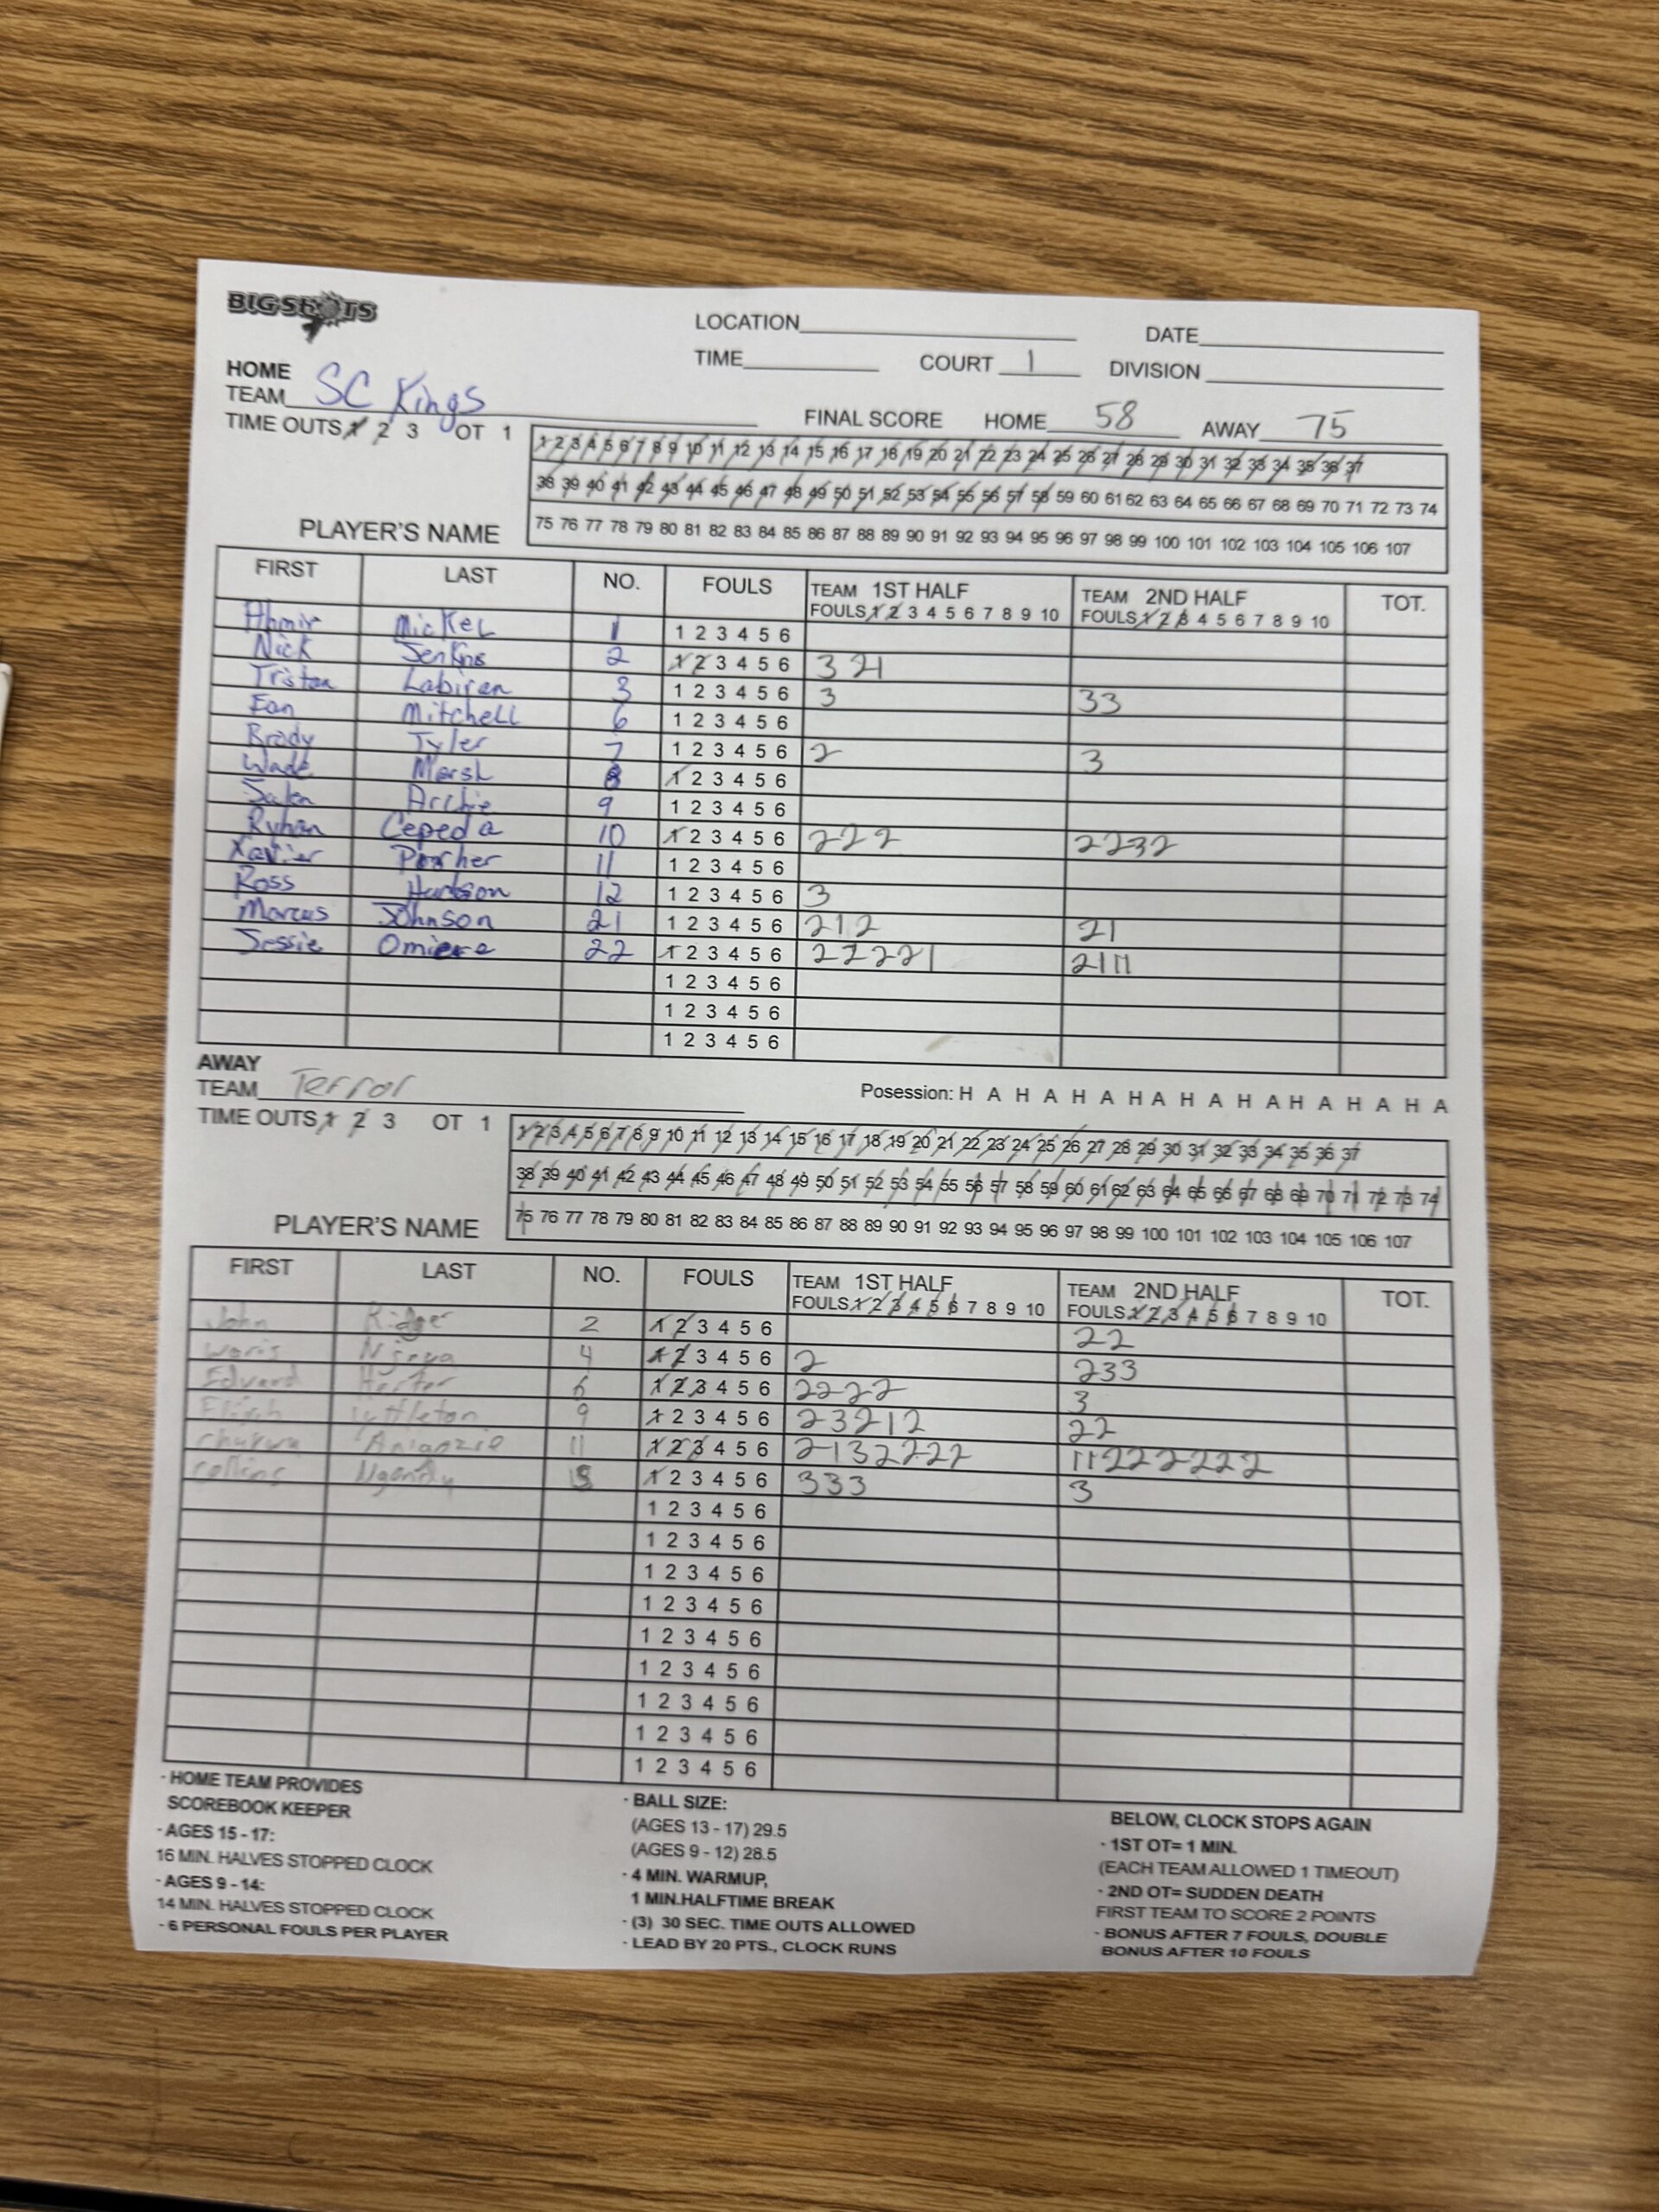 BIGSHOTS
LOCATION DATE
TIME COURT 1 DIVISION
HOME
TEAM SC Kings
FINAL SCORE HOME 58 AWAY 75
TIME OUTS 1 2 3 OT 1
1 2 3 4 5 6 7 8 9 10 11 12 13 14 15 16 17 18 19 20 21 22 23 24 25 26 27 28 29 30 31 32 33 34 35 36 37
38 39 40 41 42 43 44 45 46 47 48 49 50 51 52 53 54 55 56 57 58 59 60 61 62 63 64 65 66 67 68 69 70 71 72 73 74
75 76 77 78 79 80 81 82 83 84 85 86 87 88 89 90 91 92 93 94 95 96 97 98 99 100 101 102 103 104 105 106 107
PLAYER'S NAME
FIRST LAST NO. FOULS TEAM 1ST HALF TEAM 2ND HALF TOT.
FOULS 1 2 3 4 5 6 7 8 9 10 FOULS 1 2 3 4 5 6 7 8 9 10
Ahmir Mickel 1 1 2 3 4 5 6
Nick Jenkins 2 1 2 3 4 5 6 3 2 1
Tristan Labiran 3 1 2 3 4 5 6 3 33
Ean Mitchell 6 1 2 3 4 5 6
Brody Tyler 7 1 2 3 4 5 6 2 3
Wade Marsh 8 1 2 3 4 5 6
Salen Archie 9 1 2 3 4 5 6
Ryhan Cepeda 10 1 2 3 4 5 6 2 2 2 2232
Xavier Porcher 11 1 2 3 4 5 6
Ross 12 1 2 3 4 5 6 3
Marcus Johnson 21 1 2 3 4 5 6 2 1 2 21
Jessie Omiere 22 1 2 3 4 5 6 2 2 2 2 1 2111
1 2 3 4 5 6
1 2 3 4 5 6
1 2 3 4 5 6
AWAY
TEAM Terror
Posession: H A H A H A H A H A H A H A H A H A
TIME OUTS 1 2 3 OT 1
1 2 3 4 5 6 7 8 9 10 11 12 13 14 15 16 17 18 19 20 21 22 23 24 25 26 27 28 29 30 31 32 33 34 35 36 37
38 39 40 41 42 43 44 45 46 47 48 49 50 51 52 53 54 55 56 57 58 59 60 61 62 63 64 65 66 67 68 69 70 71 72 73 74
75 76 77 78 79 80 81 82 83 84 85 86 87 88 89 90 91 92 93 94 95 96 97 98 99 100 101 102 103 104 105 106 107
PLAYER'S NAME
FIRST LAST NO. FOULS TEAM 1ST HALF TEAM 2ND HALF TOT.
FOULS 1 2 3 4 5 6 7 8 9 10 FOULS 1 2 3 4 5 6 7 8 9 10
John 2 1 2 3 4 5 6 22
4 1 2 3 4 5 6 2 233
Edward 6 1 2 3 4 5 6 2222 3
Elijah Littleton 9 1 2 3 4 5 6 23212 22
11 1 2 3 4 5 6 2132222 11222222
collins 1 2 3 4 5 6 333 3
1 2 3 4 5 6
1 2 3 4 5 6
1 2 3 4 5 6
1 2 3 4 5 6
1 2 3 4 5 6
1 2 3 4 5 6
1 2 3 4 5 6
1 2 3 4 5 6
1 2 3 4 5 6
- HOME TEAM PROVIDES
SCOREBOOK KEEPER
- AGES 15 - 17:
16 MIN. HALVES STOPPED CLOCK
- AGES 9 - 14:
14 MIN. HALVES STOPPED CLOCK
- 6 PERSONAL FOULS PER PLAYER
- BALL SIZE:
(AGES 13 - 17) 29.5
(AGES 9 - 12) 28.5
- 4 MIN. WARMUP,
1 MIN.HALFTIME BREAK
- (3) 30 SEC. TIME OUTS ALLOWED
- LEAD BY 20 PTS., CLOCK RUNS
BELOW, CLOCK STOPS AGAIN
- 1ST OT= 1 MIN.
(EACH TEAM ALLOWED 1 TIMEOUT)
- 2ND OT= SUDDEN DEATH
FIRST TEAM TO SCORE 2 POINTS
- BONUS AFTER 7 FOULS, DOUBLE
BONUS AFTER 10 FOULS